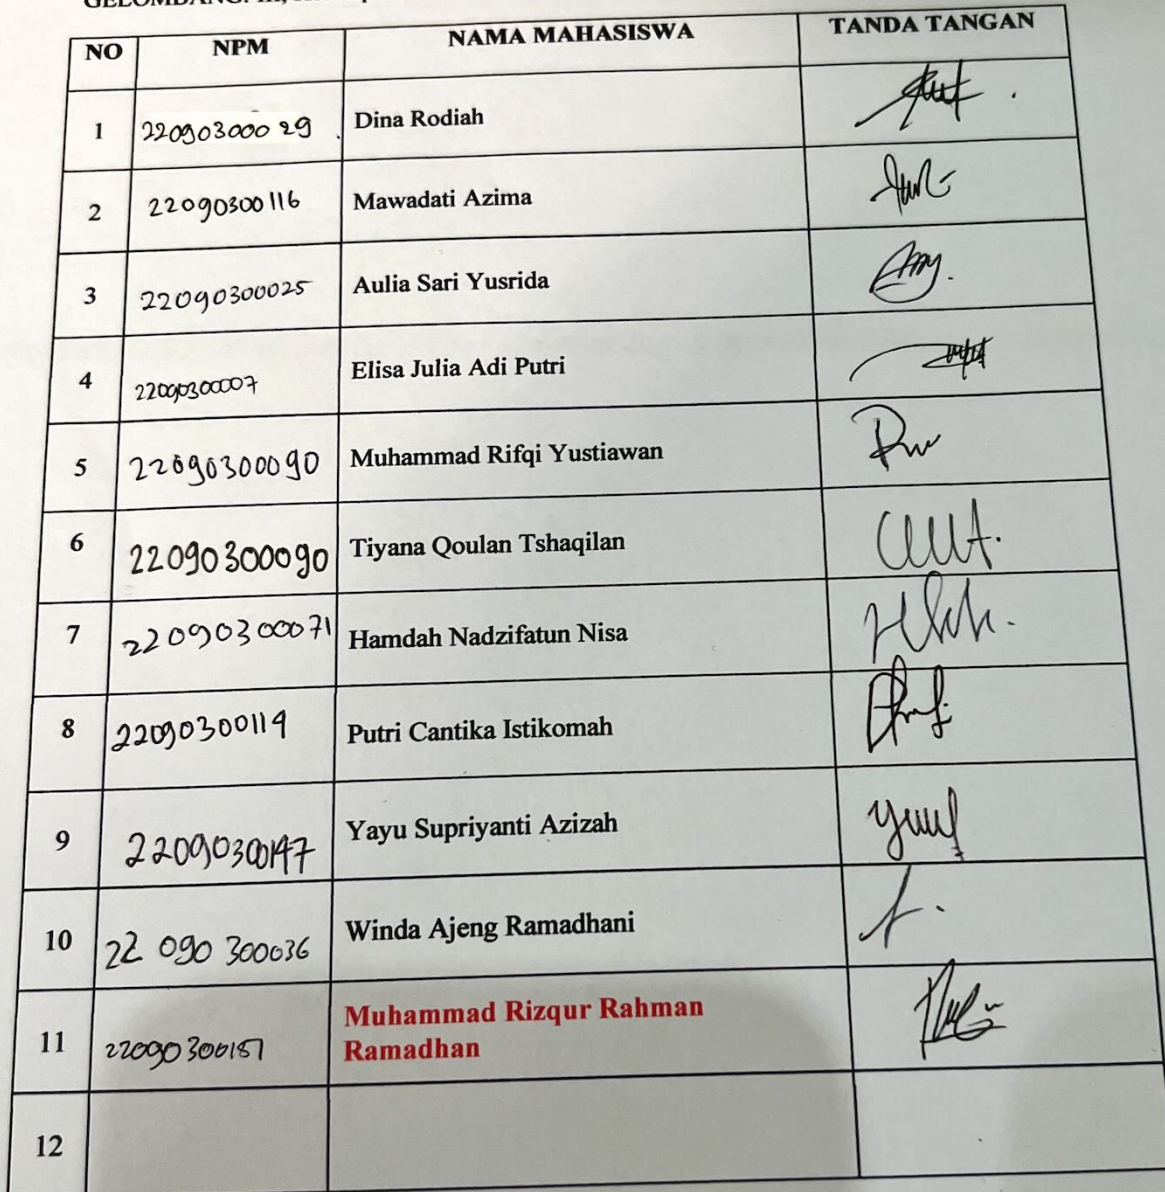 NO NPM NAMA MAHASISWA TANDA TANGAN
1 22090300029 Dina Rodiah
2 22090300116 Mawadati Azima
3 22090300025 Aulia Sari Yusrida
4 22090300007 Elisa Julia Adi Putri
5 22090300090 Muhammad Rifqi Yustiawan
6 22090300090 Tiyana Qoulan Tshaqilan
7 22090300071 Hamdah Nadzifatun Nisa
8 22090300119 Putri Cantika Istikomah
9 22090300147 Yayu Supriyanti Azizah
10 22 090 300036 Winda Ajeng Ramadhani
11 22090300151 Muhammad Rizqur Rahman
Ramadhan
12